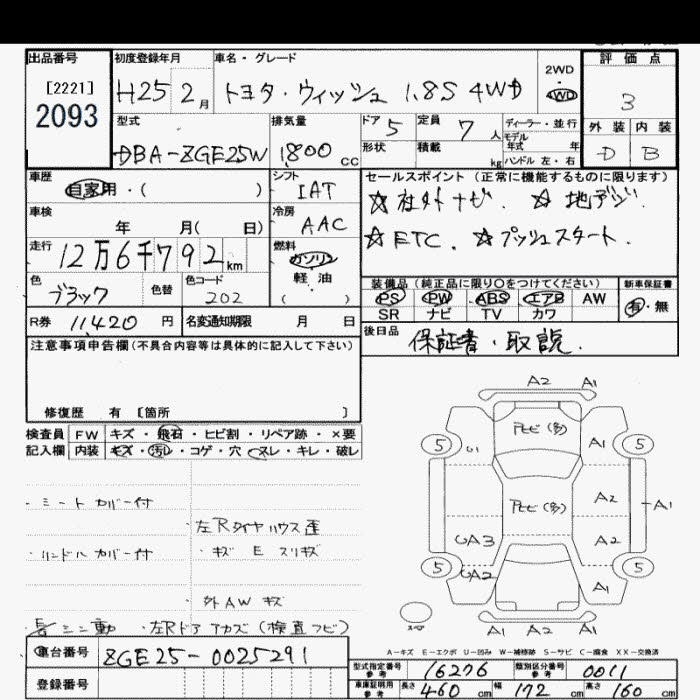 出品番号
[2221]
2093
初度登録年月
H25 2月
車名・グレード
トヨタ・ウィッシュ 1.8S 4WD
2WD
4WD
評価点
3
外装 内装
D B
型式
DBA-ZGE25W
排気量
1800 cc
ドア 5
定員 7 人
形状
積載 kg
ディーラー・並行
モデル年式 年
ハンドル 左・右
車歴
自家用・( )
シフト
IAT
車検
年 月( 日)
冷房
AAC
走行
12万6千792 km
燃料
ガソリン
軽油
( )
色
ブラック
色替
色コード
202
R券 11,420 円
名変通知期限 月 日
セールスポイント(正常に機能するものに限ります)
☆社外ナビ. ☆地デジ.
☆ETC. ☆プッシュスタート.
装備品(純正品に限り〇をつけてください)
PS PW ABS エアB AW
SR ナビ TV カワ
新車保証書
有・無
後日品
保証書・取説.
注意事項申告欄(不具合内容等は具体的に記入して下さい)
修復歴 有 [箇所 ]
検査員記入欄
FW キズ・飛石・ヒビ割・リペア跡・×要
内装 キズ・汚レ・コゲ・穴・スレ・キレ・破レ
・シートカバー付
・ハンドルカバー付
・左Rタイヤハウス歪
・キズ E スリキズ
・外AW キズ
・左Rドア
車台番号 ZGE25-0025291
登録番号
A2 A1
5 5
A1
A2
A1
A2
A1
UA3
UA2
5 5
A1 A2 A1
A-キズ E-エクボ U-凹み W-補修跡 S-サビ C-腐食 XX-交換済
型式指定番号 参考 16276
類別区分番号 参考 0011
車庫証明用 参考 長さ 460 cm 幅 172 cm 高さ 160 cm